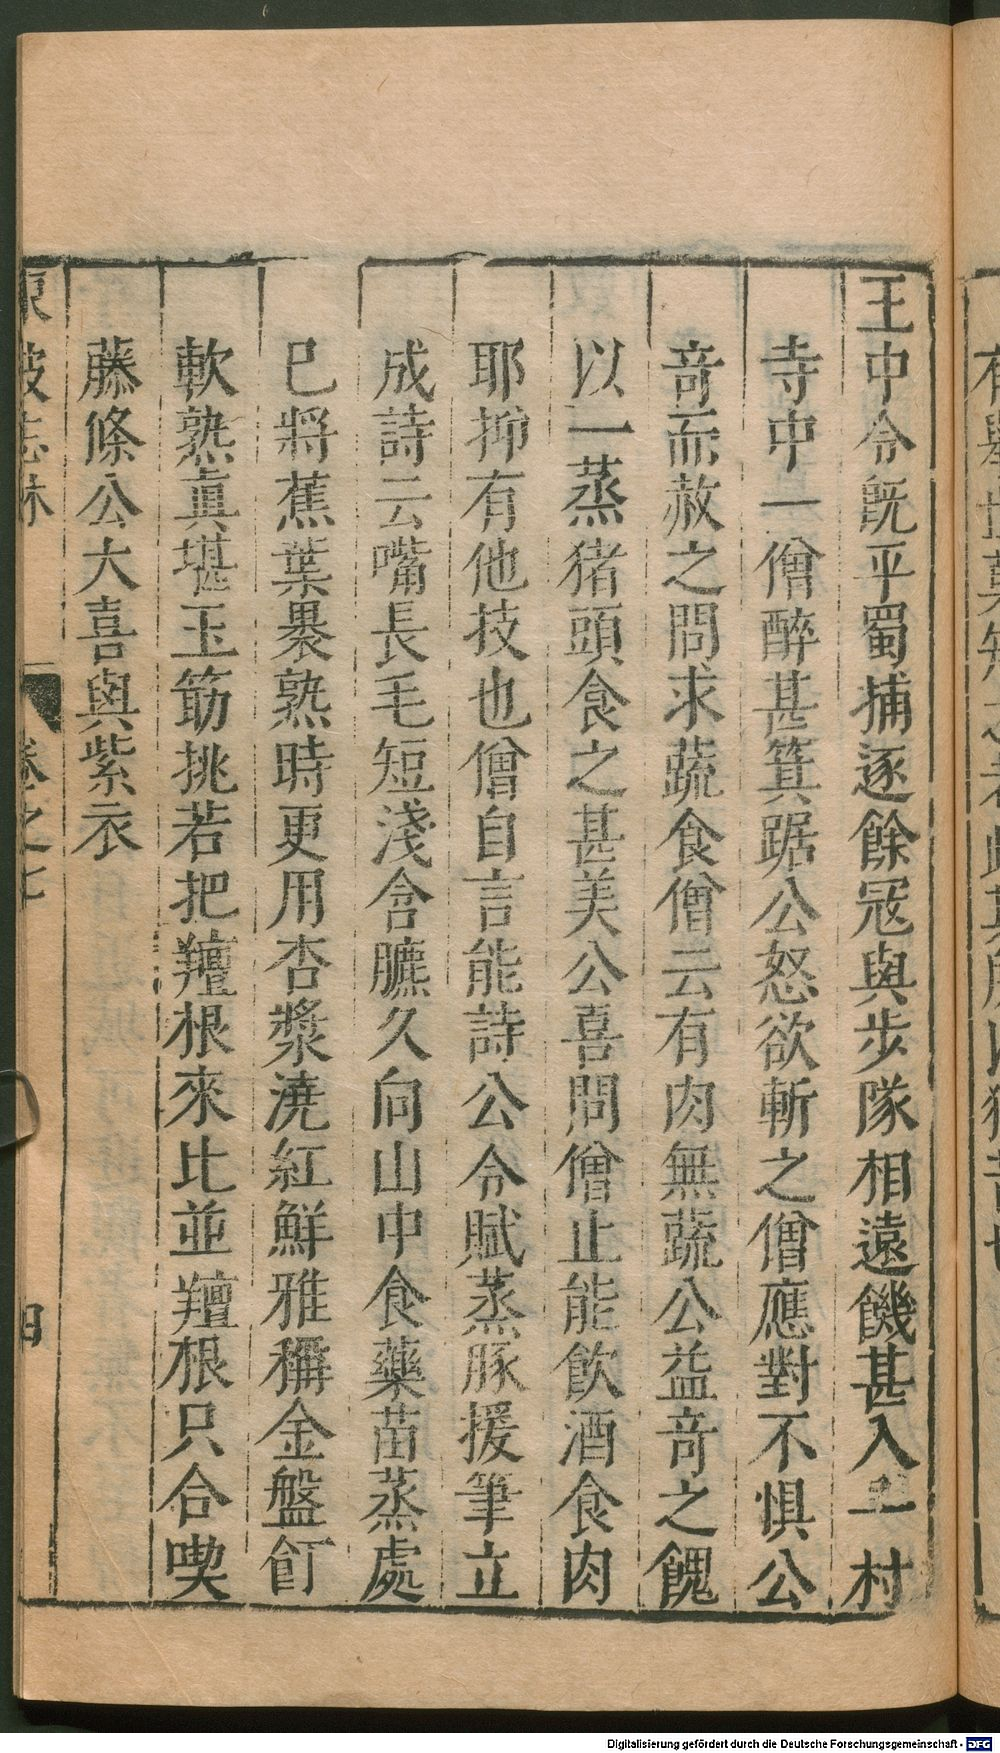 王中令旣平蜀捕逐餘冦與步隊相遠饑甚入一村
寺中一僧醉甚箕踞公怒欲斬之僧應對不惧公
竒而赦之問求蔬食僧云有肉無蔬公益竒之餽
以一蒸猪頭食之甚美公喜問僧止能飲酒食肉
耶抑有他技也僧自言能詩公令賦蒸豚援筆立
成詩云嘴長毛短淺含臕久向山中食藥苗蒸處
已將蕉葉褁熟時更用杏漿澆紅鮮雅稱金盤飣
軟熟眞堪玉筯挑若把羶根來比並羶根只合喫
藤條公大喜與紫衣
東坡志林
卷之七
四
Digitalisierung gefördert durch die Deutsche Forschungsgemeinschaft - DFG